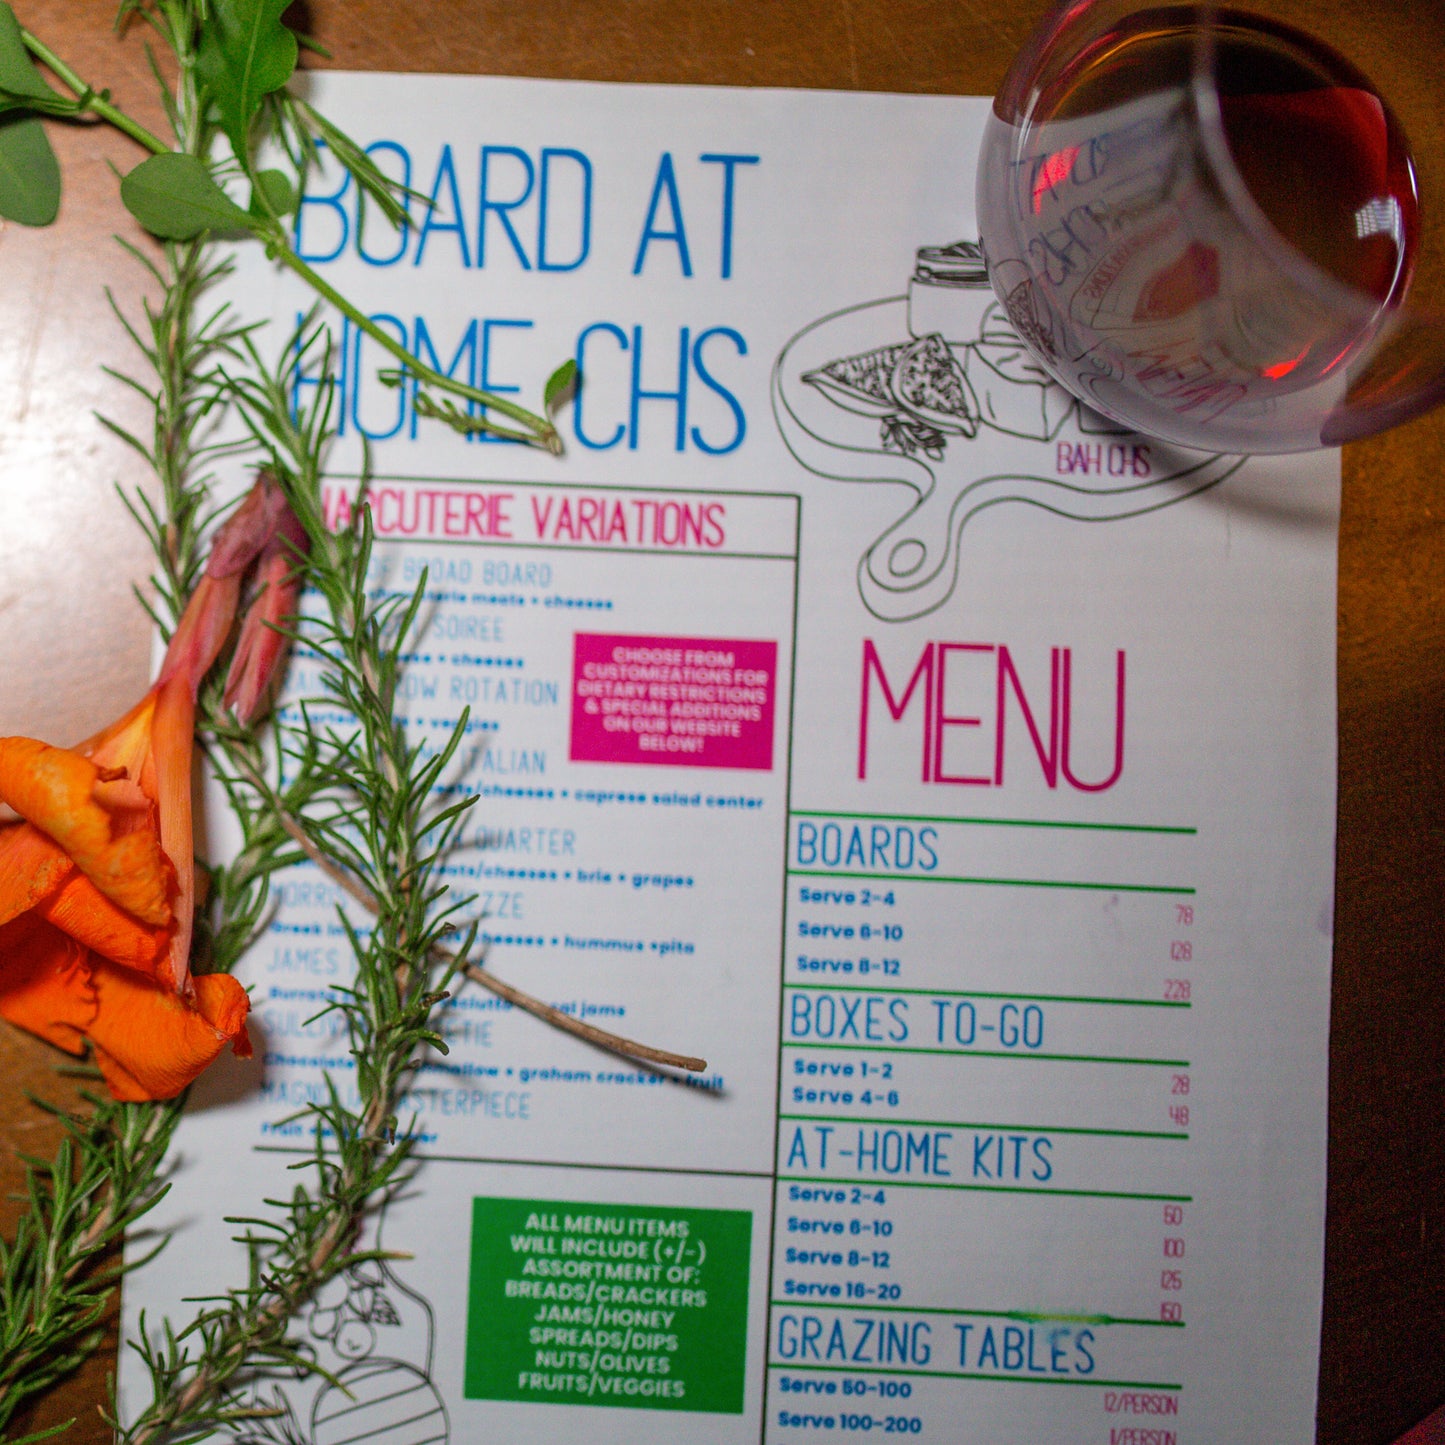 BOARD AT
HOME CHS
BAH CHS
VARIATIONS
BROAD BOARD
meats • cheeses
SOIREE
• cheeses
ROTATION
• veggies
ITALIAN
/cheeses • caprese salad center
QUARTER
/cheeses • brie • grapes
MEZZE
Greek cheeses • hummus •pita
JAMES
Burrata jams
Chocolate • graham cracker • fruit
Fruit
CHOOSE FROM
CUSTOMIZATIONS FOR
DIETARY RESTRICTIONS
& SPECIAL ADDITIONS
ON OUR WEBSITE
BELOW!
ALL MENU ITEMS
WILL INCLUDE (+/-)
ASSORTMENT OF:
BREADS/CRACKERS
JAMS/HONEY
SPREADS/DIPS
NUTS/OLIVES
FRUITS/VEGGIES
MENU
BOARDS
Serve 2-4 78
Serve 6-10 128
Serve 8-12 228
BOXES TO-GO
Serve 1-2 28
Serve 4-6 48
AT-HOME KITS
Serve 2-4 50
Serve 6-10 100
Serve 8-12 125
Serve 16-20 150
GRAZING TABLES
Serve 50-100 12/PERSON
Serve 100-200 11/PERSON